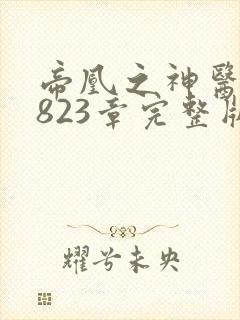 帝凰之神醫
823章完整版
耀兮未央